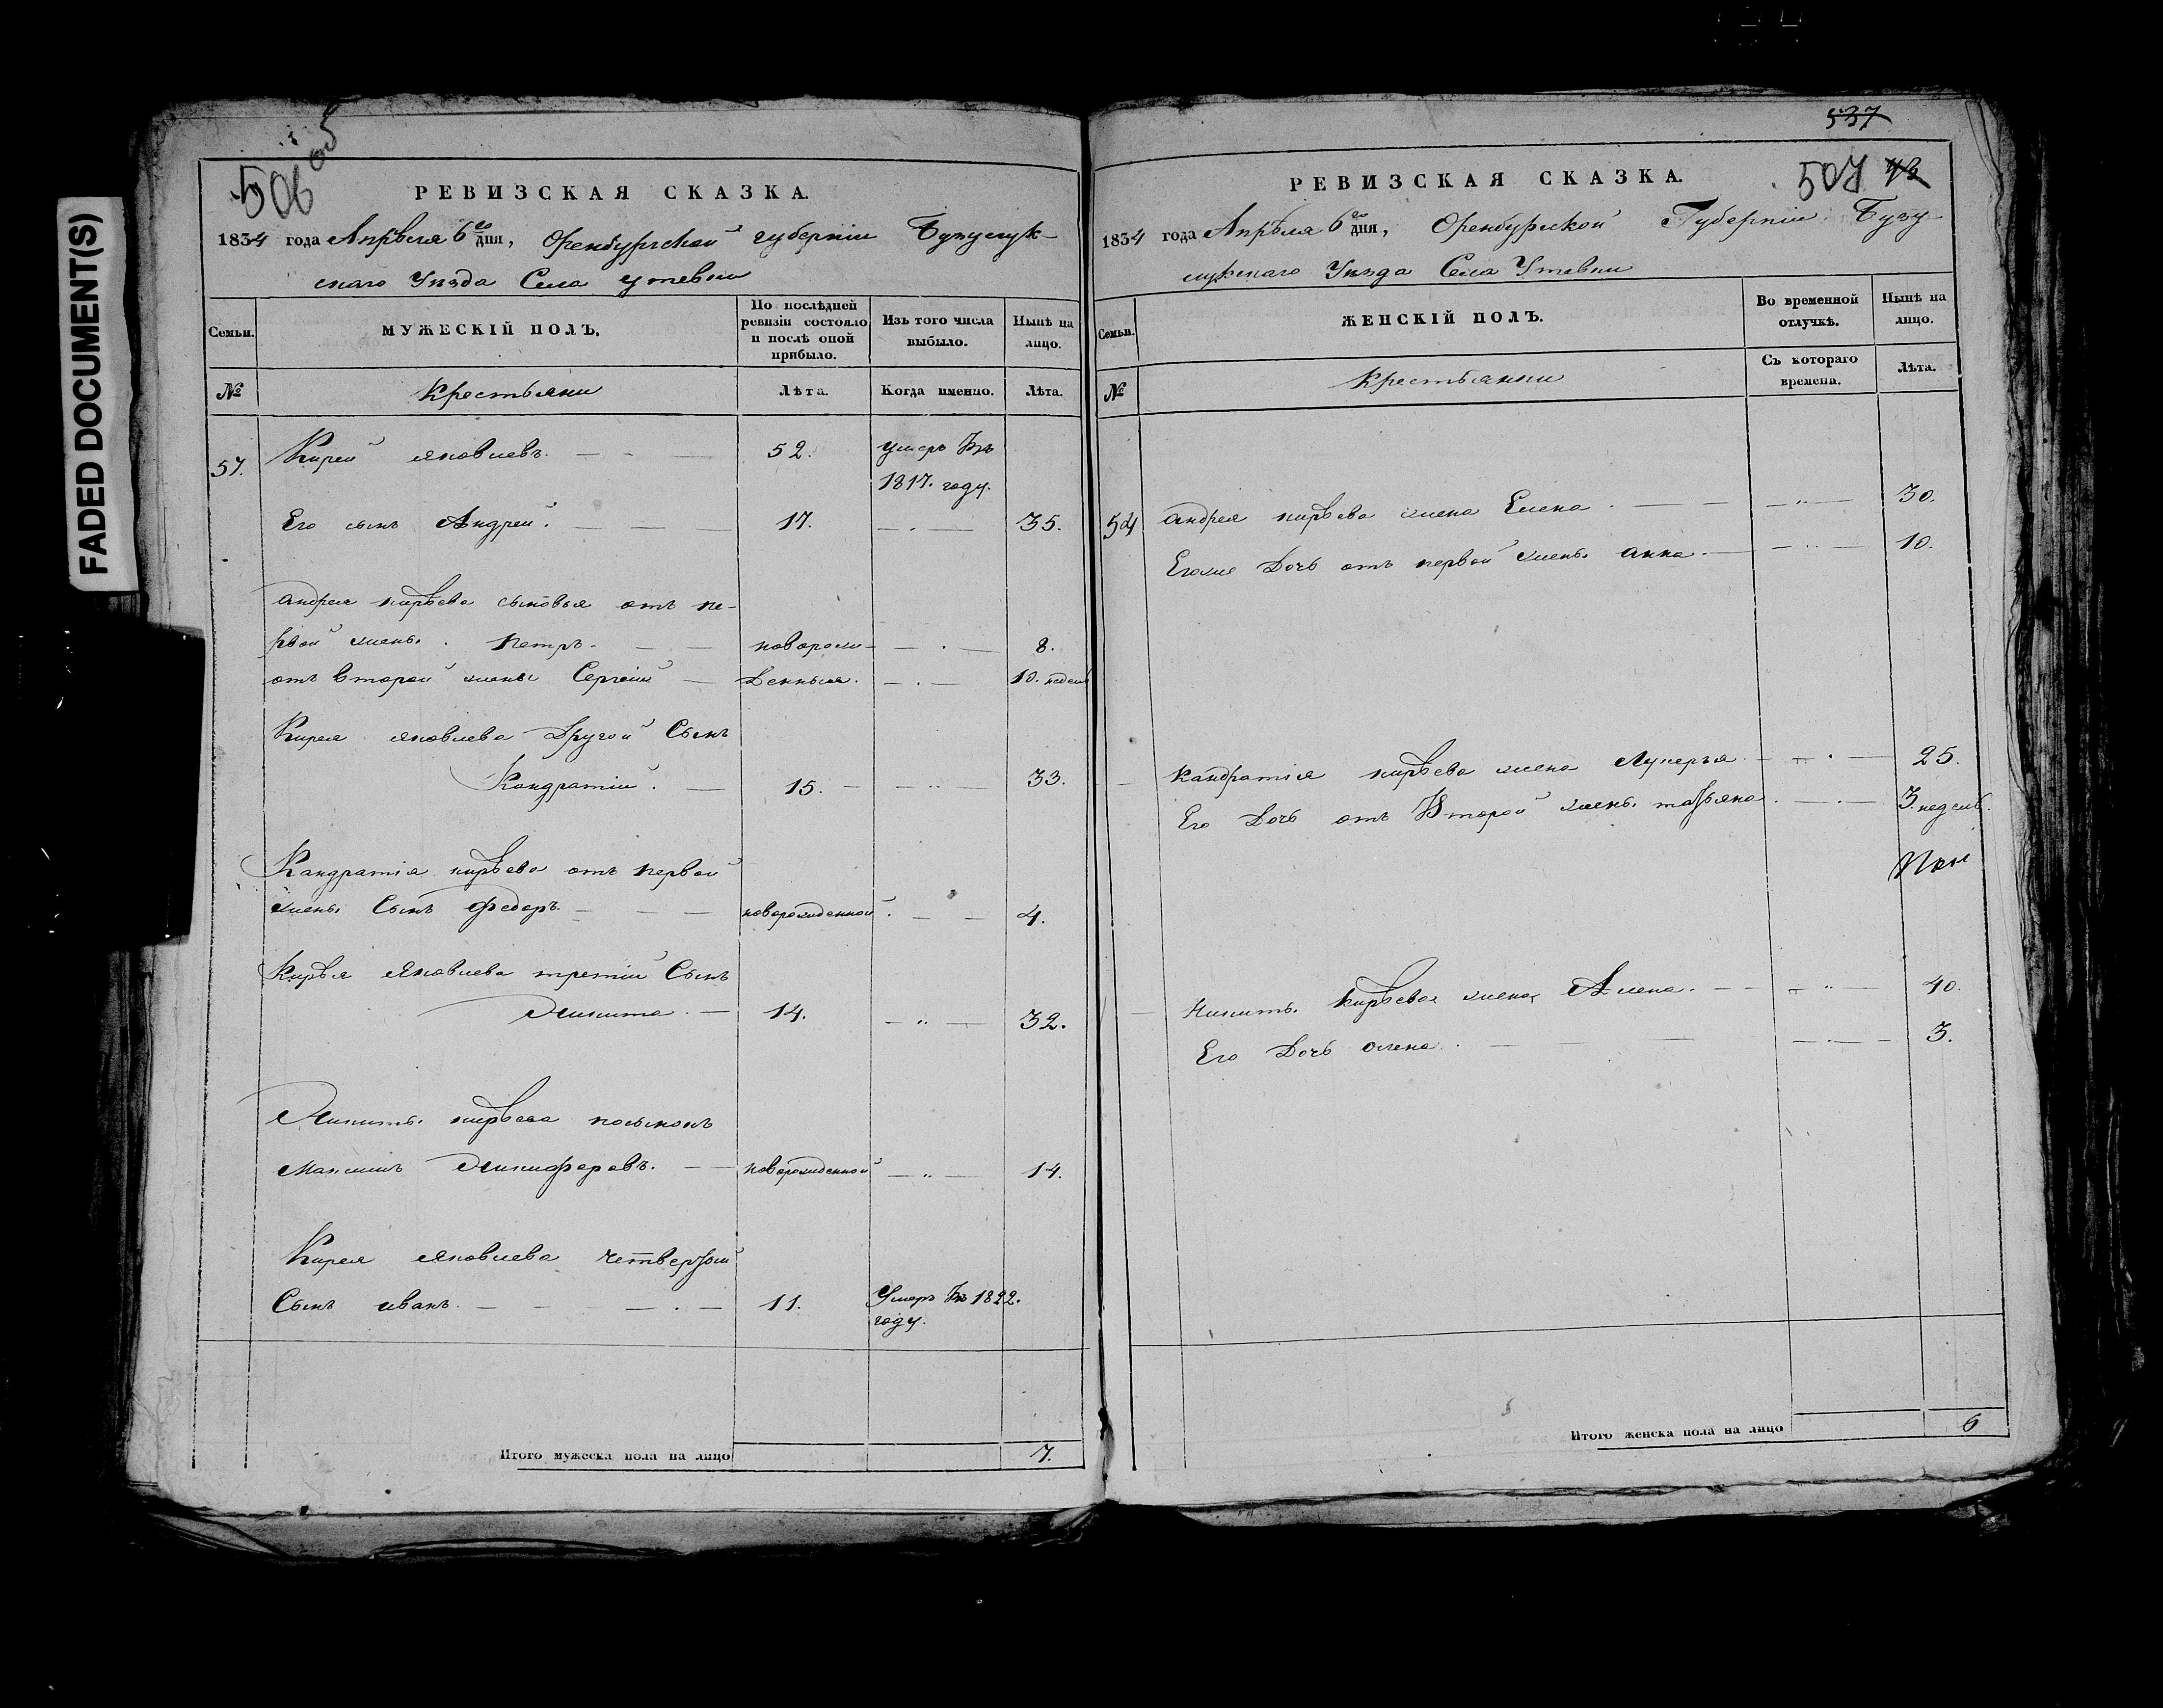 FADED DOCUMENT(S)
506 об
РЕВИЗСКАЯ СКАЗКА.
1834 года Апрѣля 6го дня, Оренбургской губерніи Бузулук-
скаго Уѣзда Села Утевки
Семьи.
МУЖЕСКІЙ ПОЛЪ.
По послѣдней ревизіи состояло и послѣ оной прибыло.
Изъ того числа выбыло.
Нынѣ на лицо.
№
Крестьяни
Лѣта.
Когда именно.
Лѣта.
57. Кирей Яковлевъ. 52. умеръ Въ
1817. году.
Его сынъ Андрей. 17. 35.
Андрея кирѣева сыновья отъ пе-
рвой жены. Петръ. новорож- 8.
отъ Второй жены Сергѣй денныя. 10. недель
Кирея Яковлева Другой Сынъ
Кондратій. 15. 33.
Кандратія кирѣева отъ первой
жены Сынъ Федоръ. новорожденной. 4.
Кирѣя Яковлева третій Сынъ
Никита. 14. 32.
Никиты кирѣева посынокъ
Максимъ Никифоровъ. новорожденной 14.
Кирея Яковлева четвертой
Сынъ иванъ. 11. Умеръ Въ 1822.
году.
Итого мужеска пола на лицо 7.
537
507 73
РЕВИЗСКАЯ СКАЗКА.
1834 года Апрѣля 6го дня, Оренбургской Губерніи Бузу-
лукскаго Уѣзда Села Утевки
Семьи.
ЖЕНСКІЙ ПОЛЪ.
Во временной отлучкѣ.
Нынѣ на лицо.
№
Крестьянки
Съ котораго времени.
Лѣта.
54 Андрея кирѣева жена Елена. 30.
Егоже Дочь отъ первой жены анна. 10.
Кандратія кирѣева жена Лукерья. 25.
Его Дочь отъ Второй жены татьяна. 3. недель.
Никиты кирѣева жена Алена. 40.
Его Дочь олена. 3.
Итого женска пола на лицо 6